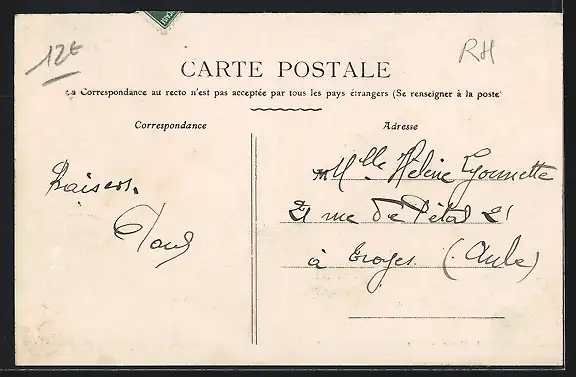 12€
RH
CARTE POSTALE
La Correspondance au recto n'est pas acceptée par tous les pays étrangers (Se renseigner à la poste)
Correspondance
Adresse
Baisers.
M^lle Hélène
21 rue de 21
à Troyes (Aube)